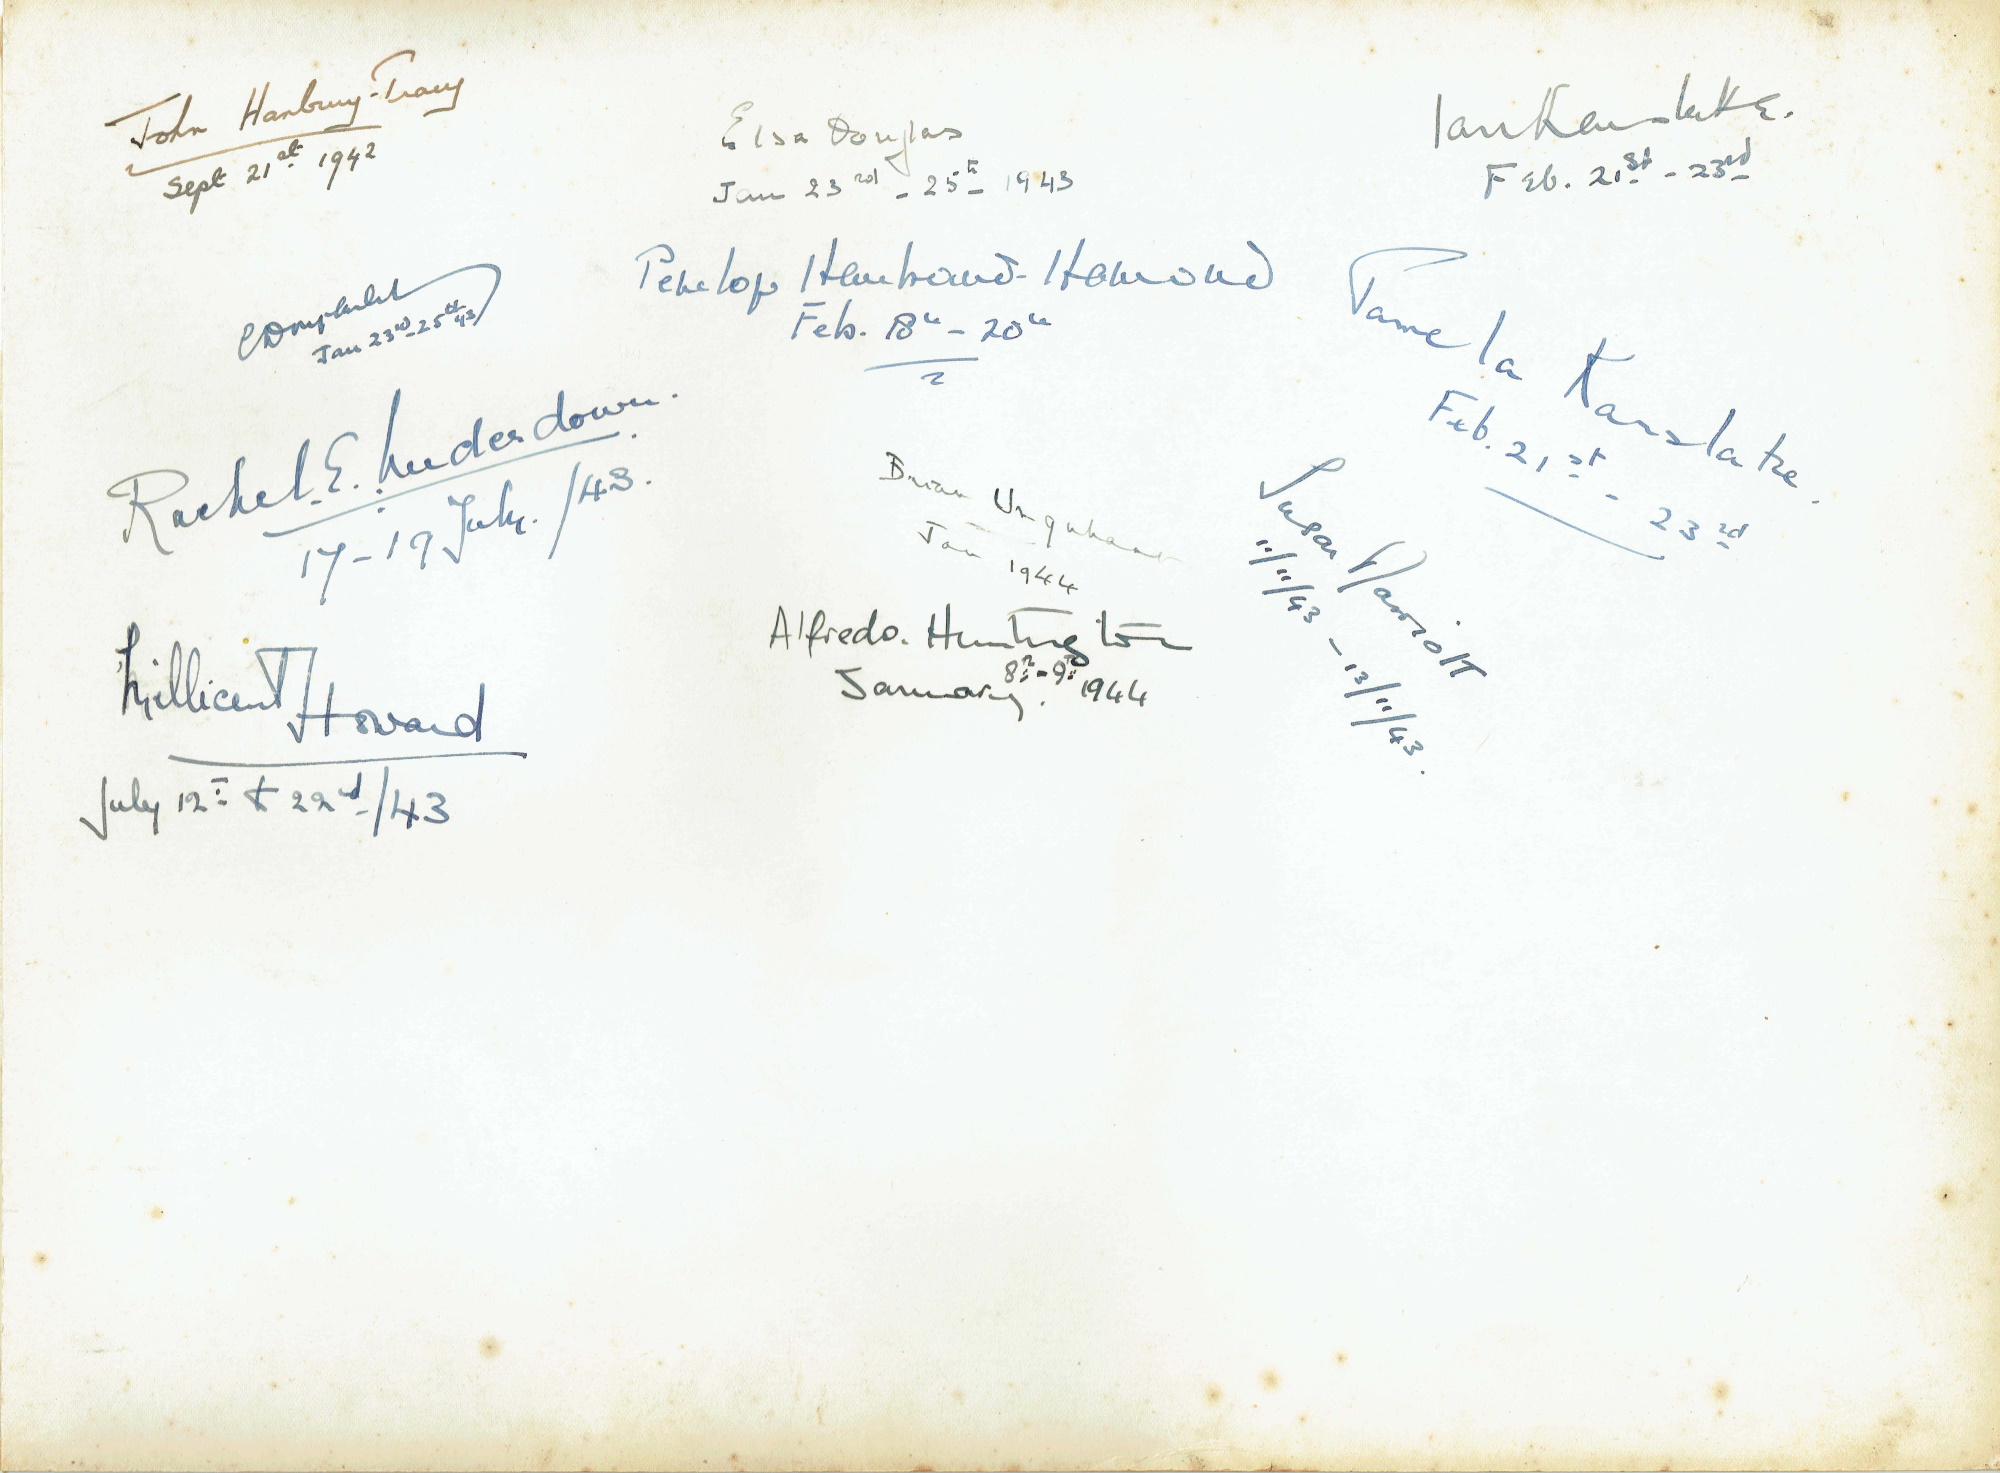 John Hanbury-Tracy
Sept 21st 1942
Elsa Douglas
Jan 23rd - 25th 1943
Ian Karslake.
Feb. 21st - 23rd
Jan 23rd-25th 43
Penelope Hanbond-Hamond
Feb. 18th - 20th
Pamela Karslake.
Feb. 21st - 23rd
Rachel. E. Underdown.
17-19 July. /43.
Brian Urquhart
Jan 1944
Susan Marriott
11/11/43 - 13/11/43.
Alfredo. Huntington
January. 8th-9th 1944
Millicent Howard
July 12th & 22nd/43